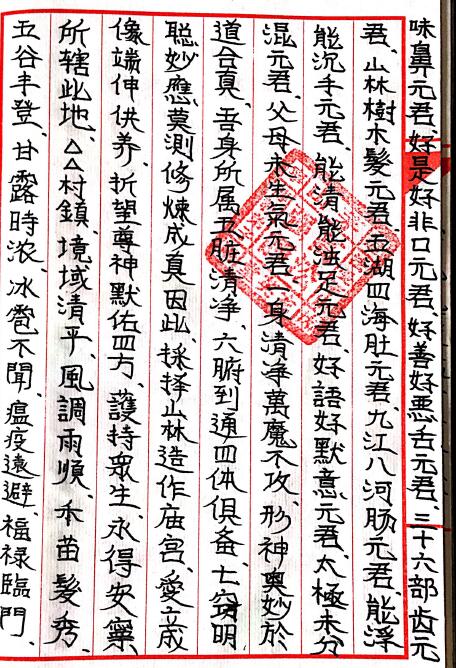 味鼻元君、好是好非口元君、好善好恶舌元君、三十六部齿元
君、山林樹木髮元君、五湖四海肚元君、九江八河肠元君、能浮
能沉手元君、能清能浊足元君、好語好默意元君、太極未分
混元君、父母未生氣元君、一身清净萬魔不攻、形神奥妙於
道合真、吾身所属五脏清净、六腑到通四体俱备、七窍明
聪妙應莫测修煉成真因此、採择山林造作庙宫、爰立成
像端伸供养、祈望尊神默佑四方、護持衆生、永得安寧
所辖此地、△△村鎮、境域清平、風調雨顺、禾苗髮秀、
五谷丰登、甘露時浓、冰雹不聞、瘟疫遠避、福禄臨門、